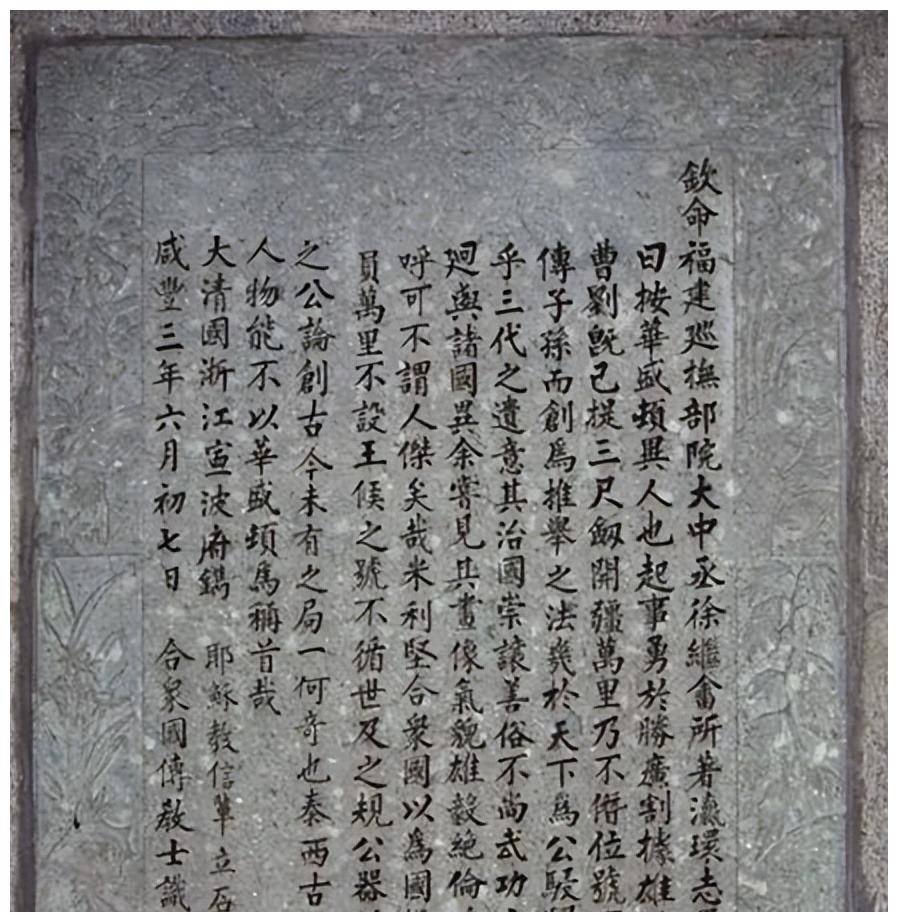 欽命福建巡撫部院大中丞徐繼畬所著瀛環志
曰按華盛頓異人也起事勇於勝廣割據雄
曹劉既已提三尺劔開疆萬里乃不僭位號
傳子孫而創為推舉之法幾於天下為公駸
乎三代之遺意其治國崇讓善俗不尚武功
迥與諸國異余嘗見其畫像氣貌雄毅絶倫
呼可不謂人傑矣哉米利堅合衆國以為國
員萬里不設王侯之號不循世及之規公器
之公論創古今未有之局一何奇也泰西古
人物能不以華盛頓為稱首哉
大清國浙江寧波府鐫 耶穌教信輩立石
咸豐三年六月初七日 合衆國傳教士識